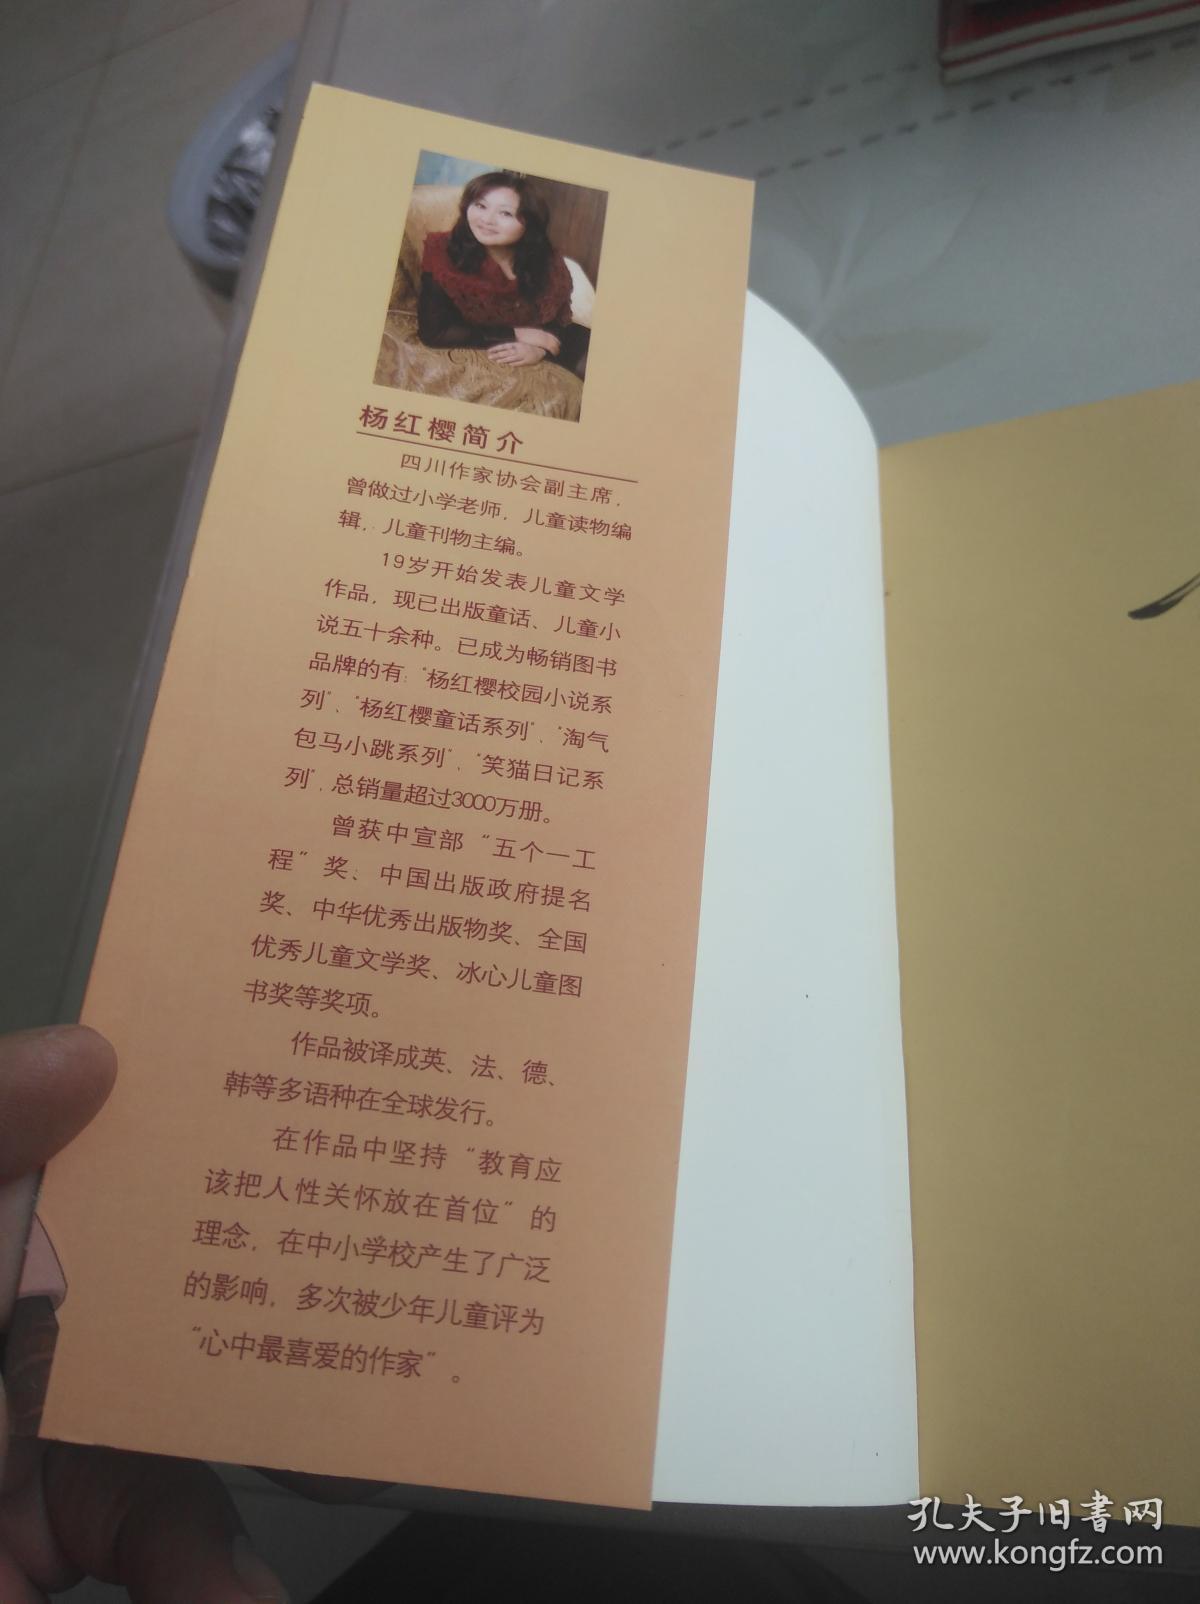 杨红樱简介
四川作家协会副主席,
曾做过小学老师, 儿童读物编
辑, 儿童刊物主编。
19岁开始发表儿童文学
作品, 现已出版童话、儿童小
说五十余种。已成为畅销图书
品牌的有:“杨红樱校园小说系
列”、“杨红樱童话系列”、“淘气
包马小跳系列”、“笑猫日记系
列”, 总销量超过3000万册。
曾获中宣部“五个一工
程”奖、中国出版政府提名
奖、中华优秀出版物奖、全国
优秀儿童文学奖、冰心儿童图
书奖等奖项。
作品被译成英、法、德、
韩等多语种在全球发行。
在作品中坚持“教育应
该把人性关怀放在首位”的
理念, 在中小学校产生了广泛
的影响, 多次被少年儿童评为
“心中最喜爱的作家”。
孔夫子旧书网
www.kongfz.com